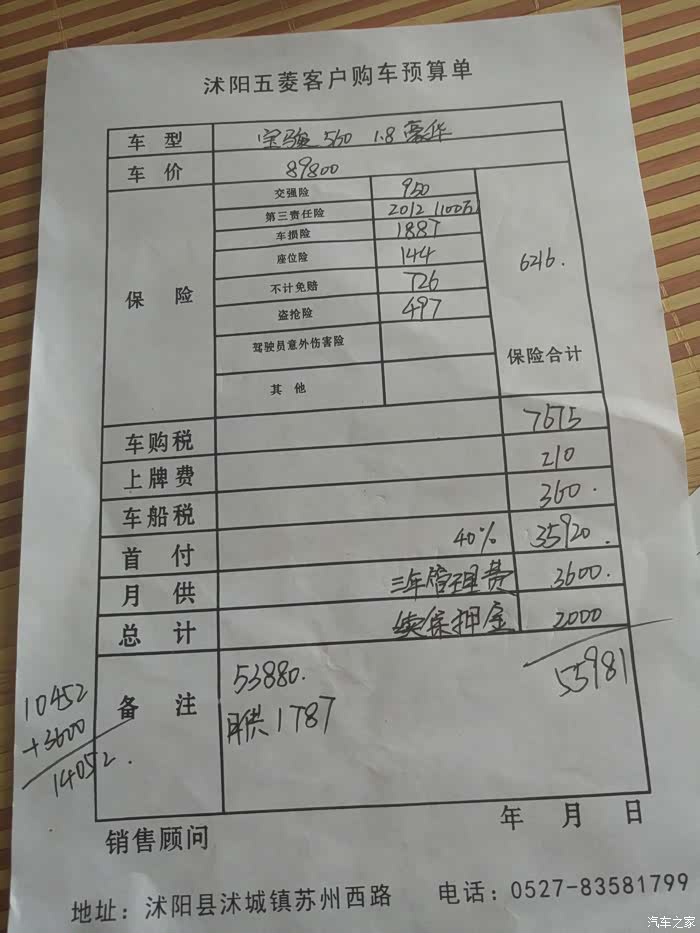 沭阳五菱客户购车预算单
车型 宝骏 560 1.8 豪华
车价 89800
保险
交强险 950
第三责任险 2012 (100万)
车损险 1887
座位险 144
不计免赔 726
盗抢险 497
驾驶员意外伤害险
其他
6216.
保险合计
车购税 7675
上牌费 210
车船税 360.
首付 40% 35920.
月供 三年管理费 3600.
总计 续保押金 2000
备注 53880. 55981
月供1787
10452
+3600
14052.
销售顾问 年 月 日
地址：沭阳县沭城镇苏州西路 电话：0527-83581799
汽车之家